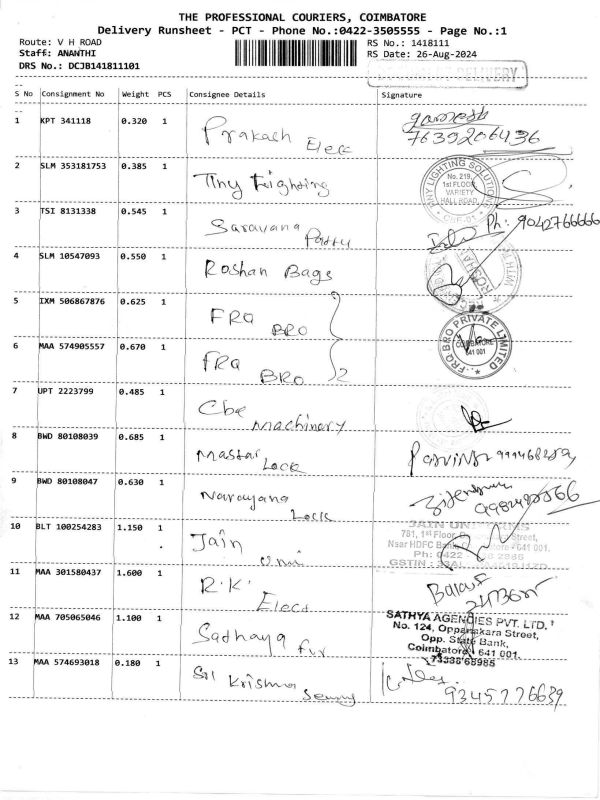 THE PROFESSIONAL COURIERS, COIMBATORE
Delivery Runsheet - PCT - Phone No.:0422-3505555 - Page No.:1
Route: V H ROAD
Staff: ANANTHI
DRS No.: DCJB141811101
RS No.: 1418111
RS Date: 26-Aug-2024
DELIVERY
S No Consignment No Weight PCS Consignee Details Signature
1 KPT 341118 0.320 1 Prakash Elec
ganesh
7639206436
2 SLM 353181753 0.385 1 Tiny Lighting
TINY LIGHTING SOLUTIONS
No. 219,
1st FLOOR,
VARIETY
HALL ROAD,
3 TSI 8131338 0.545 1 Saravana
Ph: 9042766666
4 SLM 10547093 0.550 1 Roshan Bags
ROSHAN
5 IXM 506867876 0.625 1 FRQ BRO
6 MAA 574905557 0.670 1 FRQ BRO 2
FRQ BRO PRIVATE LIMITED
COIMBATORE
641 001
7 UPT 2223799 0.485 1 Cbe Machinery
8 BWD 80108039 0.685 1 Mastar Lock
9 BWD 80108047 0.630 1 Narayana Lock
10 BLT 100254283 1.150 1 Jain Uni
JAIN
781, 1st Floor, Street,
Nsar HDFC 641 001.
Ph: 0422
GSTIN :
11 MAA 301580437 1.600 1 R.K. Elecs
12 MAA 705065046 1.100 1 Sathaya Fur
SATHYA AGENCIES PVT. LTD.
No. 124, Oppanakara Street,
Opp. State Bank,
Coimbatore - 641 001.
73388 68985
13 MAA 574693018 0.180 1 Sri Krishna
9345776639